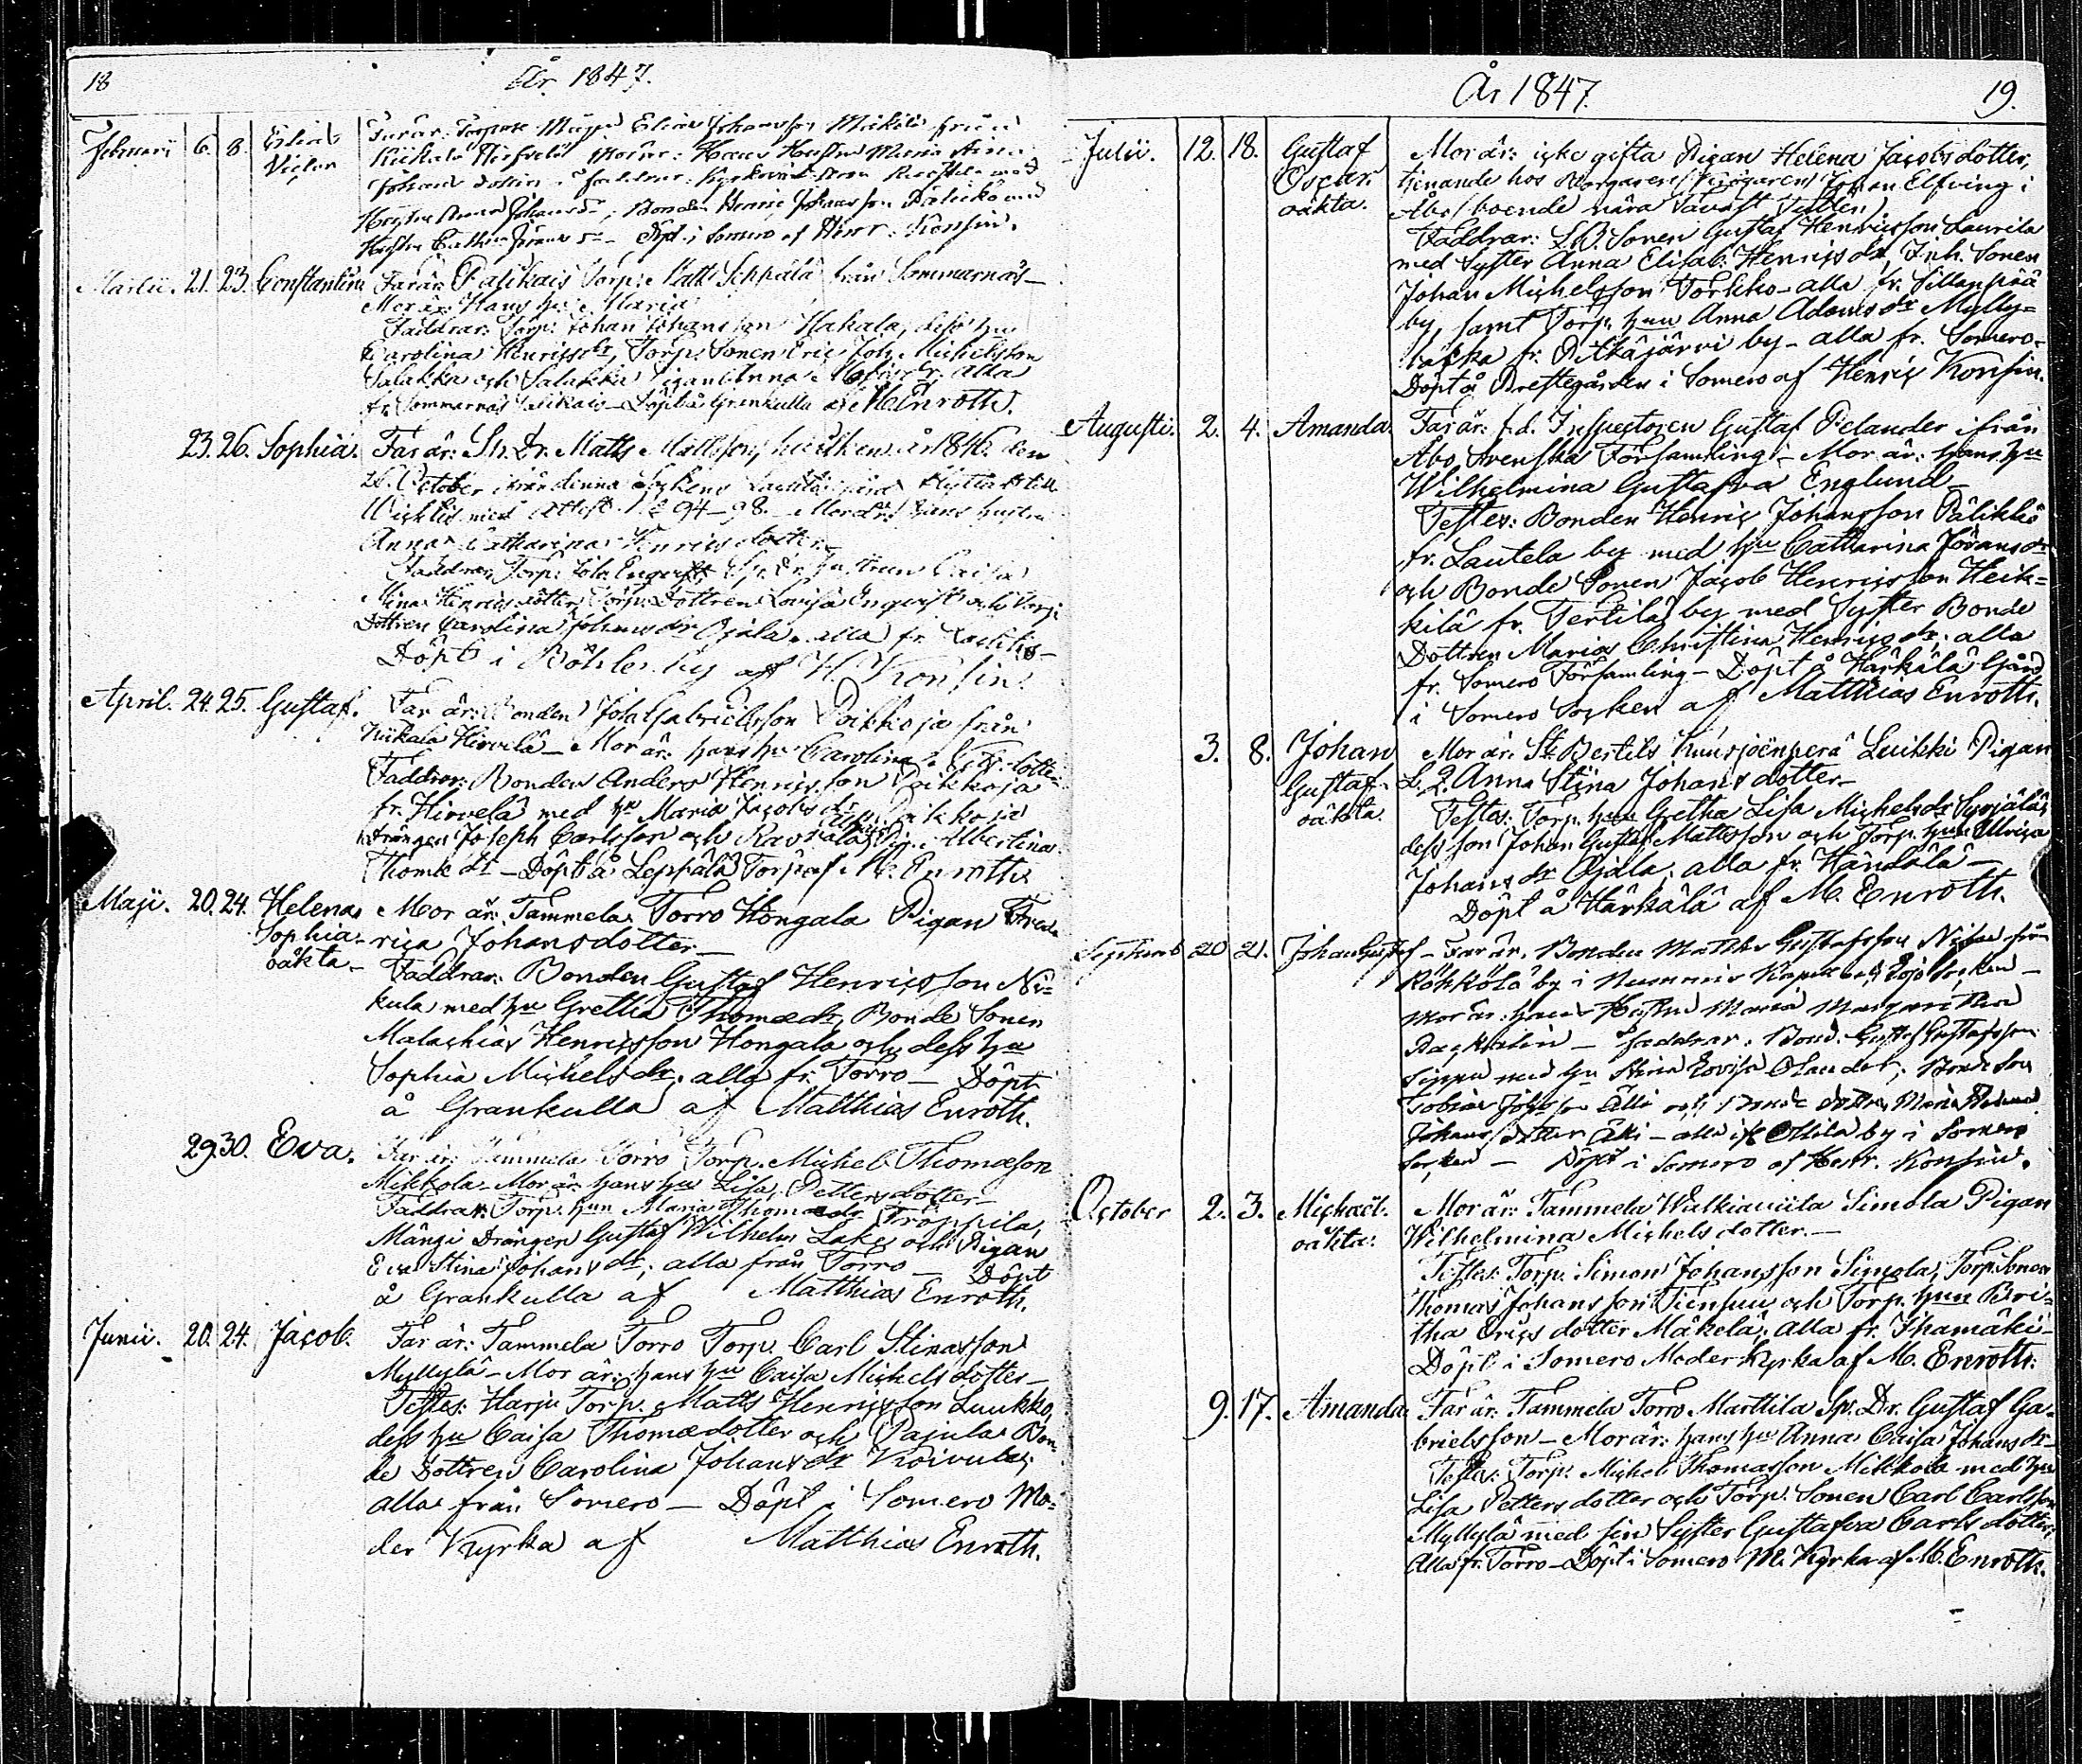 18
År 1847.
Februarii 6. 8. Victor
Johans dotter
Döpt i Somero af Henr. Konsin.
Martii. 21. 23. Constantin Far är: Torp. Matts Seppälä från Sommarnäs –
Mor är: Hans hu Maria
Faddrar: Torp. Johan Johansson Hakala, dess hu
Carolina Henricsdr, Torp. Sonen Eric Joh. Michelsson
Salakka och Salakka Pigan Anna alla
fr. Sommarnäs – Döpt å Grankulla af M. Enroth.
23. 26. Sophia. Far är: Sp. Dr. Matts Mattsson, hvilken år 1846 den
October från denna Sockens
med Attest № 94–98. – Mor är: hans hustru
Anna Catharina Henricsdotter
Faddrar: Torp. Joh. Enqvist,
Henricsdotter, Torp. Dottren Lovisa Enqvist och Torp.
Dottren Carolina Johansdr Ojala, alla fr.
Döpt i by af H. Konsin.
April. 24. 25. Gustaf. Far är: Bonden Joh. Gabrielsson Poikkoja från
Hirvelä – Mor är: hans hu Carolina dotter
Faddrar: Bonden Anders Henricsson Poikkoja
fr. Hirvelä med hu Maria Jacobsdr,
Drängen Joseph Carlsson och Albertina
Thomædr – Döpt å Leppälä Torp af M. Enroth.
Maji. 20. 24. Helena Mor är: Tammela Torro Hongala Pigan Frede-
Sophia rica Johansdotter –
oäkta – Faddrar: Bonden Gustaf Henricsson Ni-
kula med hu Gretha Thomædr, Bonde Sonen
Malachias Henricsson Hongala och dess hu
Sophia Michelsdr. alla fr. Torro – Döpt
å Grankulla af Matthias Enroth.
29. 30. Eva. Far är: Tammela Torro Torp. Michel Thomæson
Mikkola – Mor är: hans hu Lisa Pettersdotter –
Faddrar: Torp. hun Maria Thomædr Tröppilä,
Mängi Drängen Gustaf Wilhelm Lake och Pigan
Eva Stina Johansdr; alla från Torro – Döpt
å Grankulla af Matthias Enroth.
Junii. 20. 24. Jacob. Far är: Tammela Torro Torp. Carl Stinasson
Myllylä – Mor är: hans hu Caisa Michelsdotter –
Testes: Harju Torp. Matts Henricsson Luukko,
dess hu Caisa Thomædotter och Pajula Bon-
de Dottren Carolina Johansdr Koivula;
alla från Somero – Döpt i Somero Mo-
der Kyrka af Matthias Enroth.
År 1847.
19.
Julii. 12. 18. Gustaf Mor är: icke gifta Pigan Helena Jacobsdotter,
Oscar. tjenande hos Borgaren Johan Elfving i
oäkta. Åbo (boende nära Tavast Tullen)
Faddrar: Sonen Gustaf Henricsson Laurila
med Syster Anna Elisab. Henricsdr, Inh. Sonen
Johan Michelsson Torkko – alla fr. Sillanpää
by, samt Torp. hun Anna Adamsdr Mylly-
backa fr. Pitkäjärvi by – alla fr. Somero –
Döpt å Prestegården i Somero af Henric Konsin.
Augusti. 2. 4. Amanda. Far är: f.d. Inspectoren Gustaf Pelander ifrån
Åbo Svenska Församling – Mor är: hans hu
Wilhelmina Gustafva Englund –
Testes: Bonden Henric Johansson Pälikkö
fr. Lautela by med hu Catharina Göransdr
och Bonde Sonen Jacob Henricsson Heik-
kilä fr. Terttilä by med Syster Bonde
Dottren Maria Christina Henricsdr; alla
fr. Somero Församling – Döpt å Härkälä Gård
i Somero Socken af Matthias Enroth.
3. 8. Johan Mor är: St. Bertils Luikki Pigan
Gustaf – Anna Stina Johansdotter –
oäkta. Testes: Torp. hun Gretha Lisa Michelsdr Syrjälä,
dess son Johan Gustaf Mattsson och Torp. hun Ulrica
Johansdr Ojala; alla fr. Händälä –
Döpt å Härkälä af M. Enroth.
Septemb 20 21. Johan Gustaf – Far är. Bonden Matths Gustafsson från
by i Nummis Kapell och Lojo Socken –
Mor är: hans Hustru Maria Margaretha
– Faddrar. Bond. Gustaf Gustafsson
Sippu med hu Stina Lovisa Olander, Bonde Son
Tobias Johsson Älli och Bonde dotter Maria
Johans dotter Älli – alla if. Ollila by i Somero
Socken – Döpt i Somero af Henr. Konsin.
October 2. 3. Michaël. Mor är: Tammela Simola Pigan
oäkta. Wilhelmina Michelsdotter. –
Testes: Torp. Simon Johansson Simola, Torp. Sonen
Thomas Johansson Tiensuu och Torp. hun Bri-
tha Ericsdotter Mäkelä; alla fr. Jhamäki –
Döpt i Somero Moder Kyrka af M. Enroth.
9. 17. Amanda. Far är: Tammela Torro Marttila Sp. Dr. Gustaf Ga-
brielsson – Mor är: hans hu Anna Caisa Johansdr –
Testes: Torp. Michel Thomasson Mikkola med hu
Lisa Pettersdotter och Torp. Sonen Carl Carlsson
Myllylä med sin Syster Gustafva Carlsdotter;
Alla fr. Torro – Döpt i Somero M. Kyrka af M. Enroth.